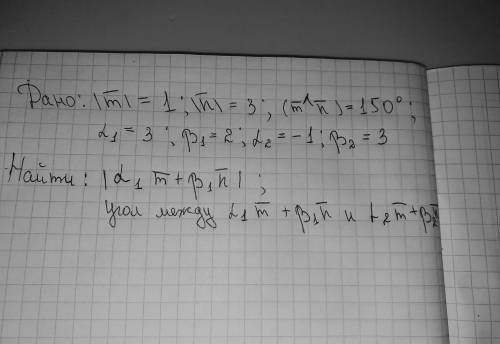 Дано: |m̅| = 1 ; |n̅| = 3 ; (m̅^n̅) = 150° ;
α₁ = 3 ; β₁ = 2 ; α₂ = -1 ; β₂ = 3
Найти : |α₁ m̅ + β₁ n̅| ;
угол между α₁ m̅ + β₁ n̅ и α₂ m̅ + β₂